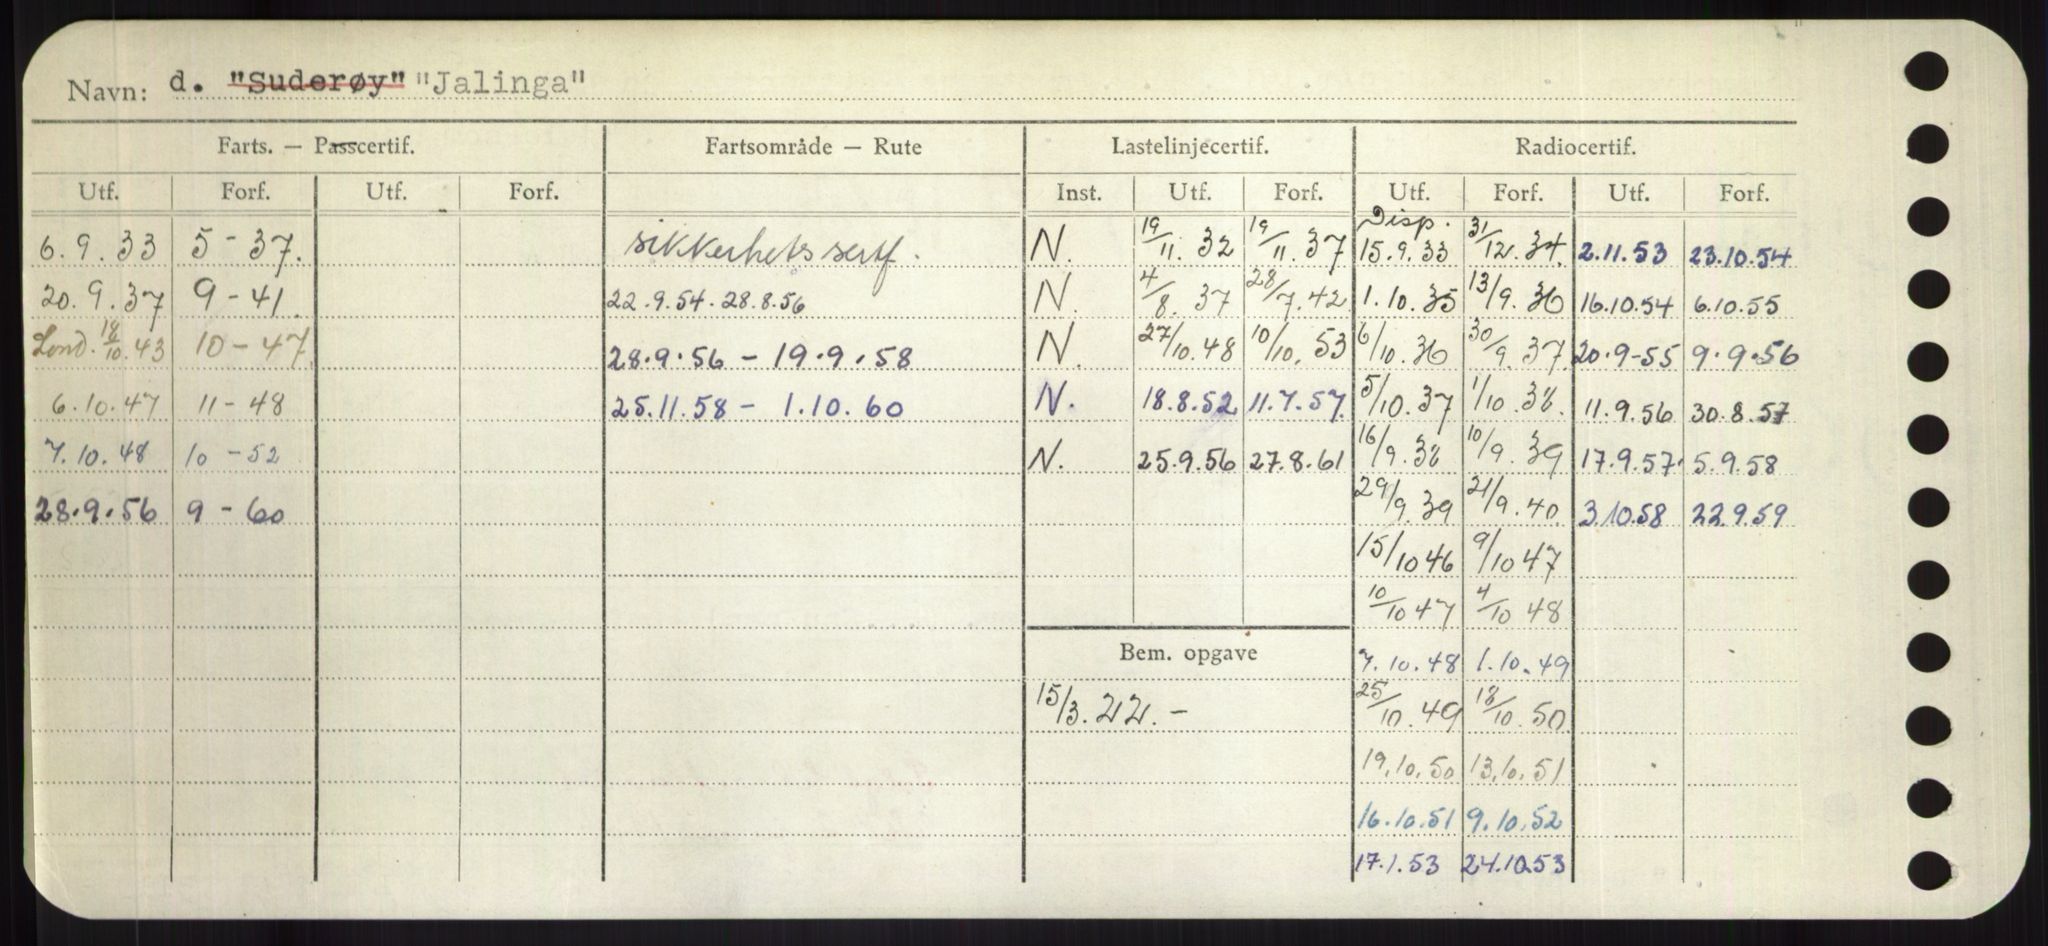 Navn: d. "Suderøy" "Jalinga"
Farts. — Passcertif. Fartsområde — Rute Lastelinjecertif. Radiocertif.
Utf. Forf. Utf. Forf. Inst. Utf. Forf. Utf. Forf. Utf. Forf.
Disp.
6.9.33 5-37. sikkerhetssertf. N. 19/11.32 19/11.37 15.9.33 31/12.34. 2.11.53 23.10.54
20.9.37 9-41. 22.9.54-28.8.56 N. 4/8.37 28/7.42 1.10.35 13/9.36 16.10.54 6.10.55
Lond. 18/10.43 10-47. 28.9.56 - 19.9.58 N. 27/10.48 10/10.53 6/10.36 30/9.37. 20.9-55 9.9.56
6.10.47 11-48 25.11.58 - 1.10.60 N. 18.8.52 11.7.57. 5/10.37 1/10.38. 11.9.56 30.8.57
7.10.48 10-52 N. 25.9.56 27.8.61 16/9.38 10/9.39 17.9.57. 5.9.58
28.9.56 9-60 29/9.39 21/9.40. 3.10.58 22.9.59
15/10 46 9/10 47
10/10 47 4/10 48
Bem. opgave 7.10.48 1.10.49
15/3.22.- 25/10.49 18/10.50
19.10.50 13.10.51
16.10.51 9.10.52
17.1.53 24.10.53